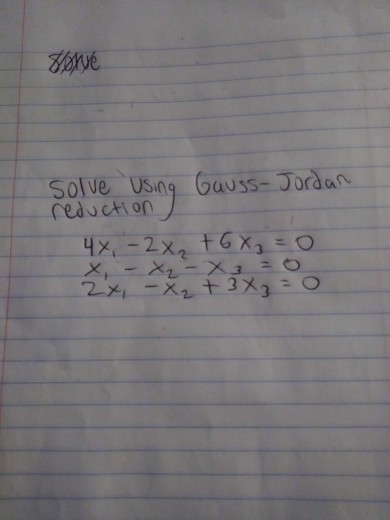 solve
Solve using Gauss-Jordan
reduction
4x₁ - 2x₂ + 6x₃ = 0
x₁ - x₂ - x₃ = 0
2x₁ - x₂ + 3x₃ = 0